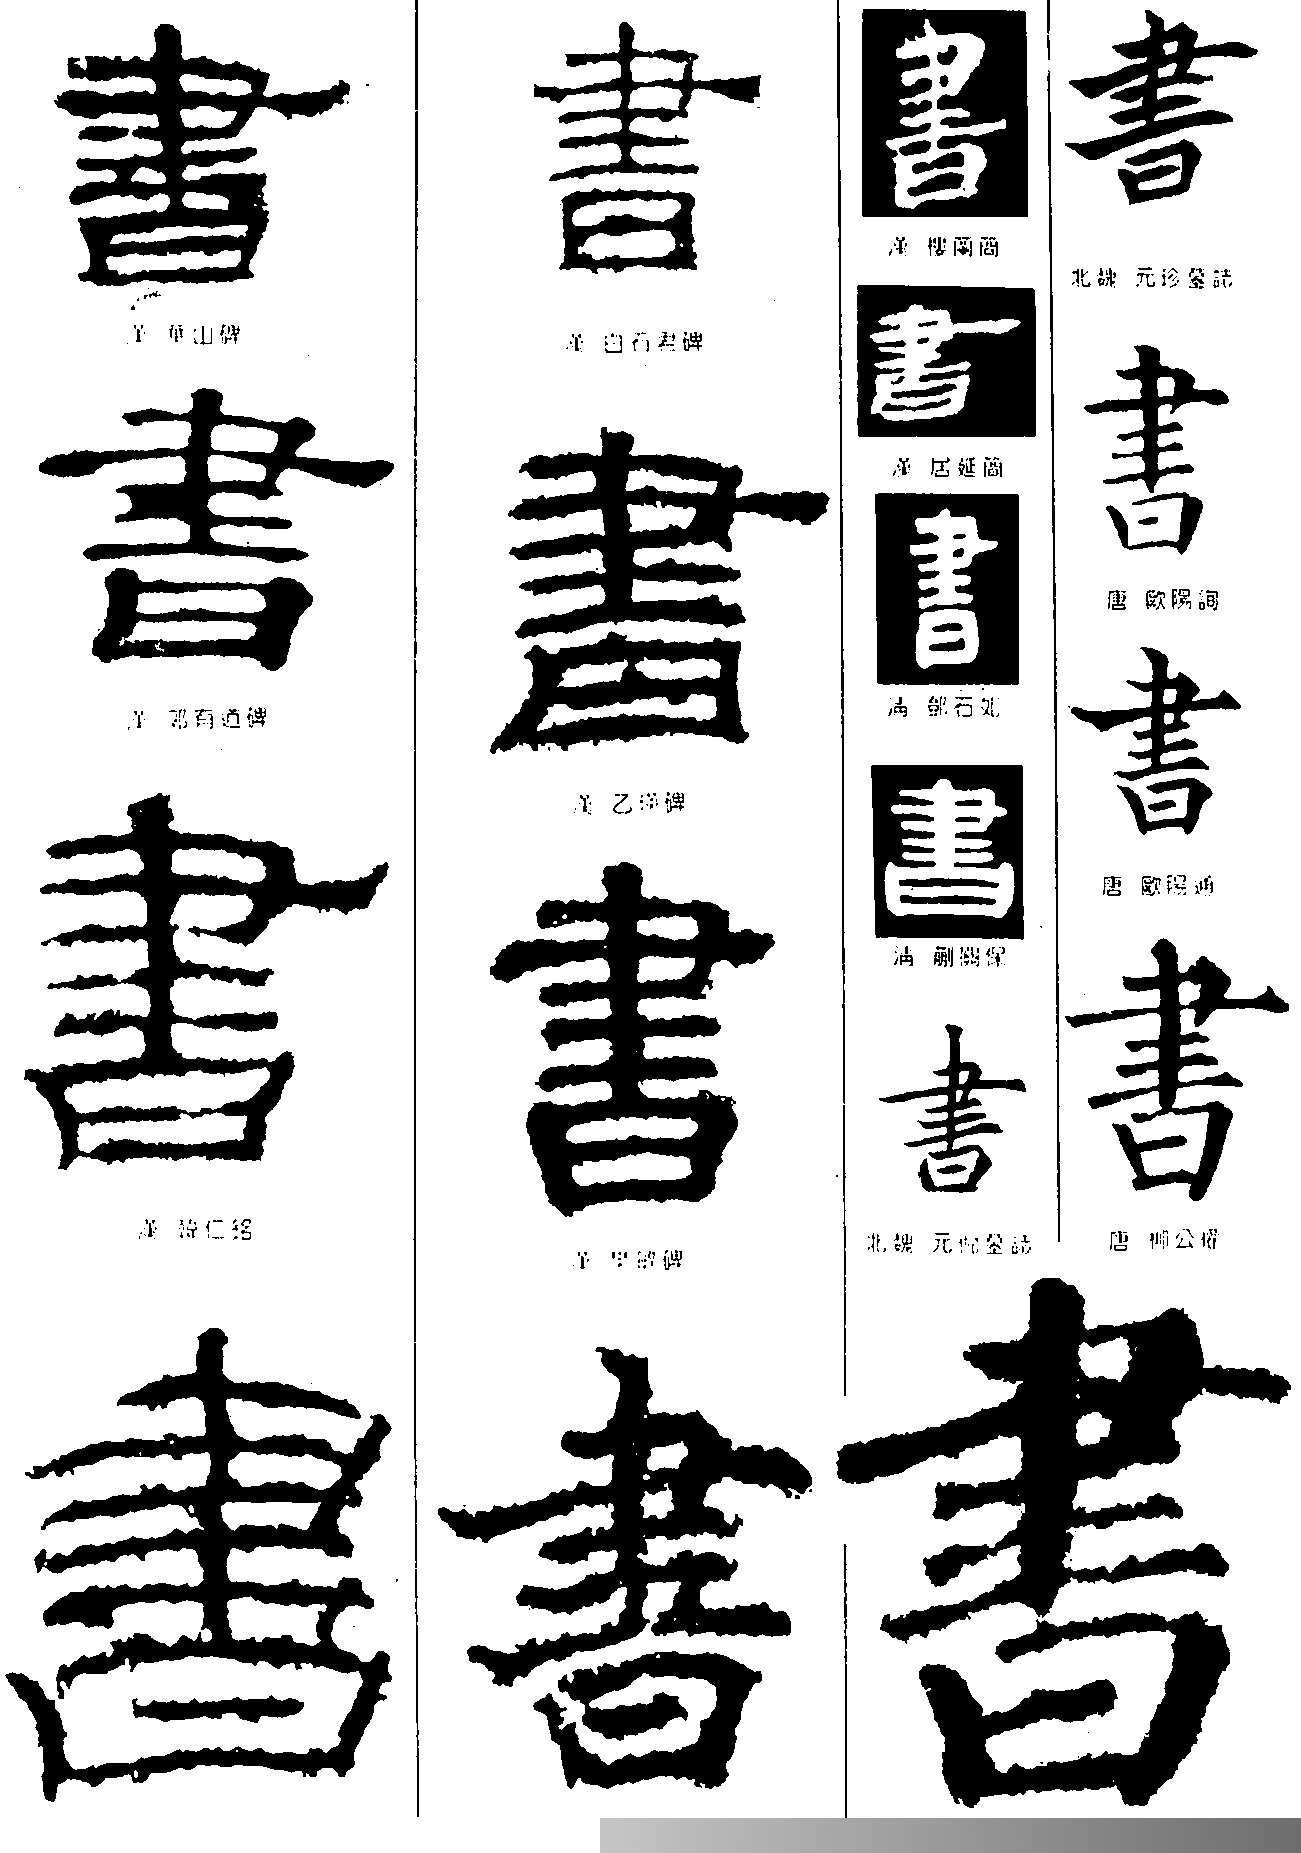 書
北魏 元珍墓誌
書
唐 歐陽詢
書
唐 歐陽通
書
唐 柳公權
書
書
漢 樓蘭簡
書
漢 居延簡
書
清 鄧石如
書
清 蒯關保
書
北魏 元倪墓誌
書
漢 白石君碑
書
漢 乙瑛碑
書
漢 尹敏碑
書
書
漢 華山碑
書
漢 郭有道碑
書
漢 韓仁銘
書